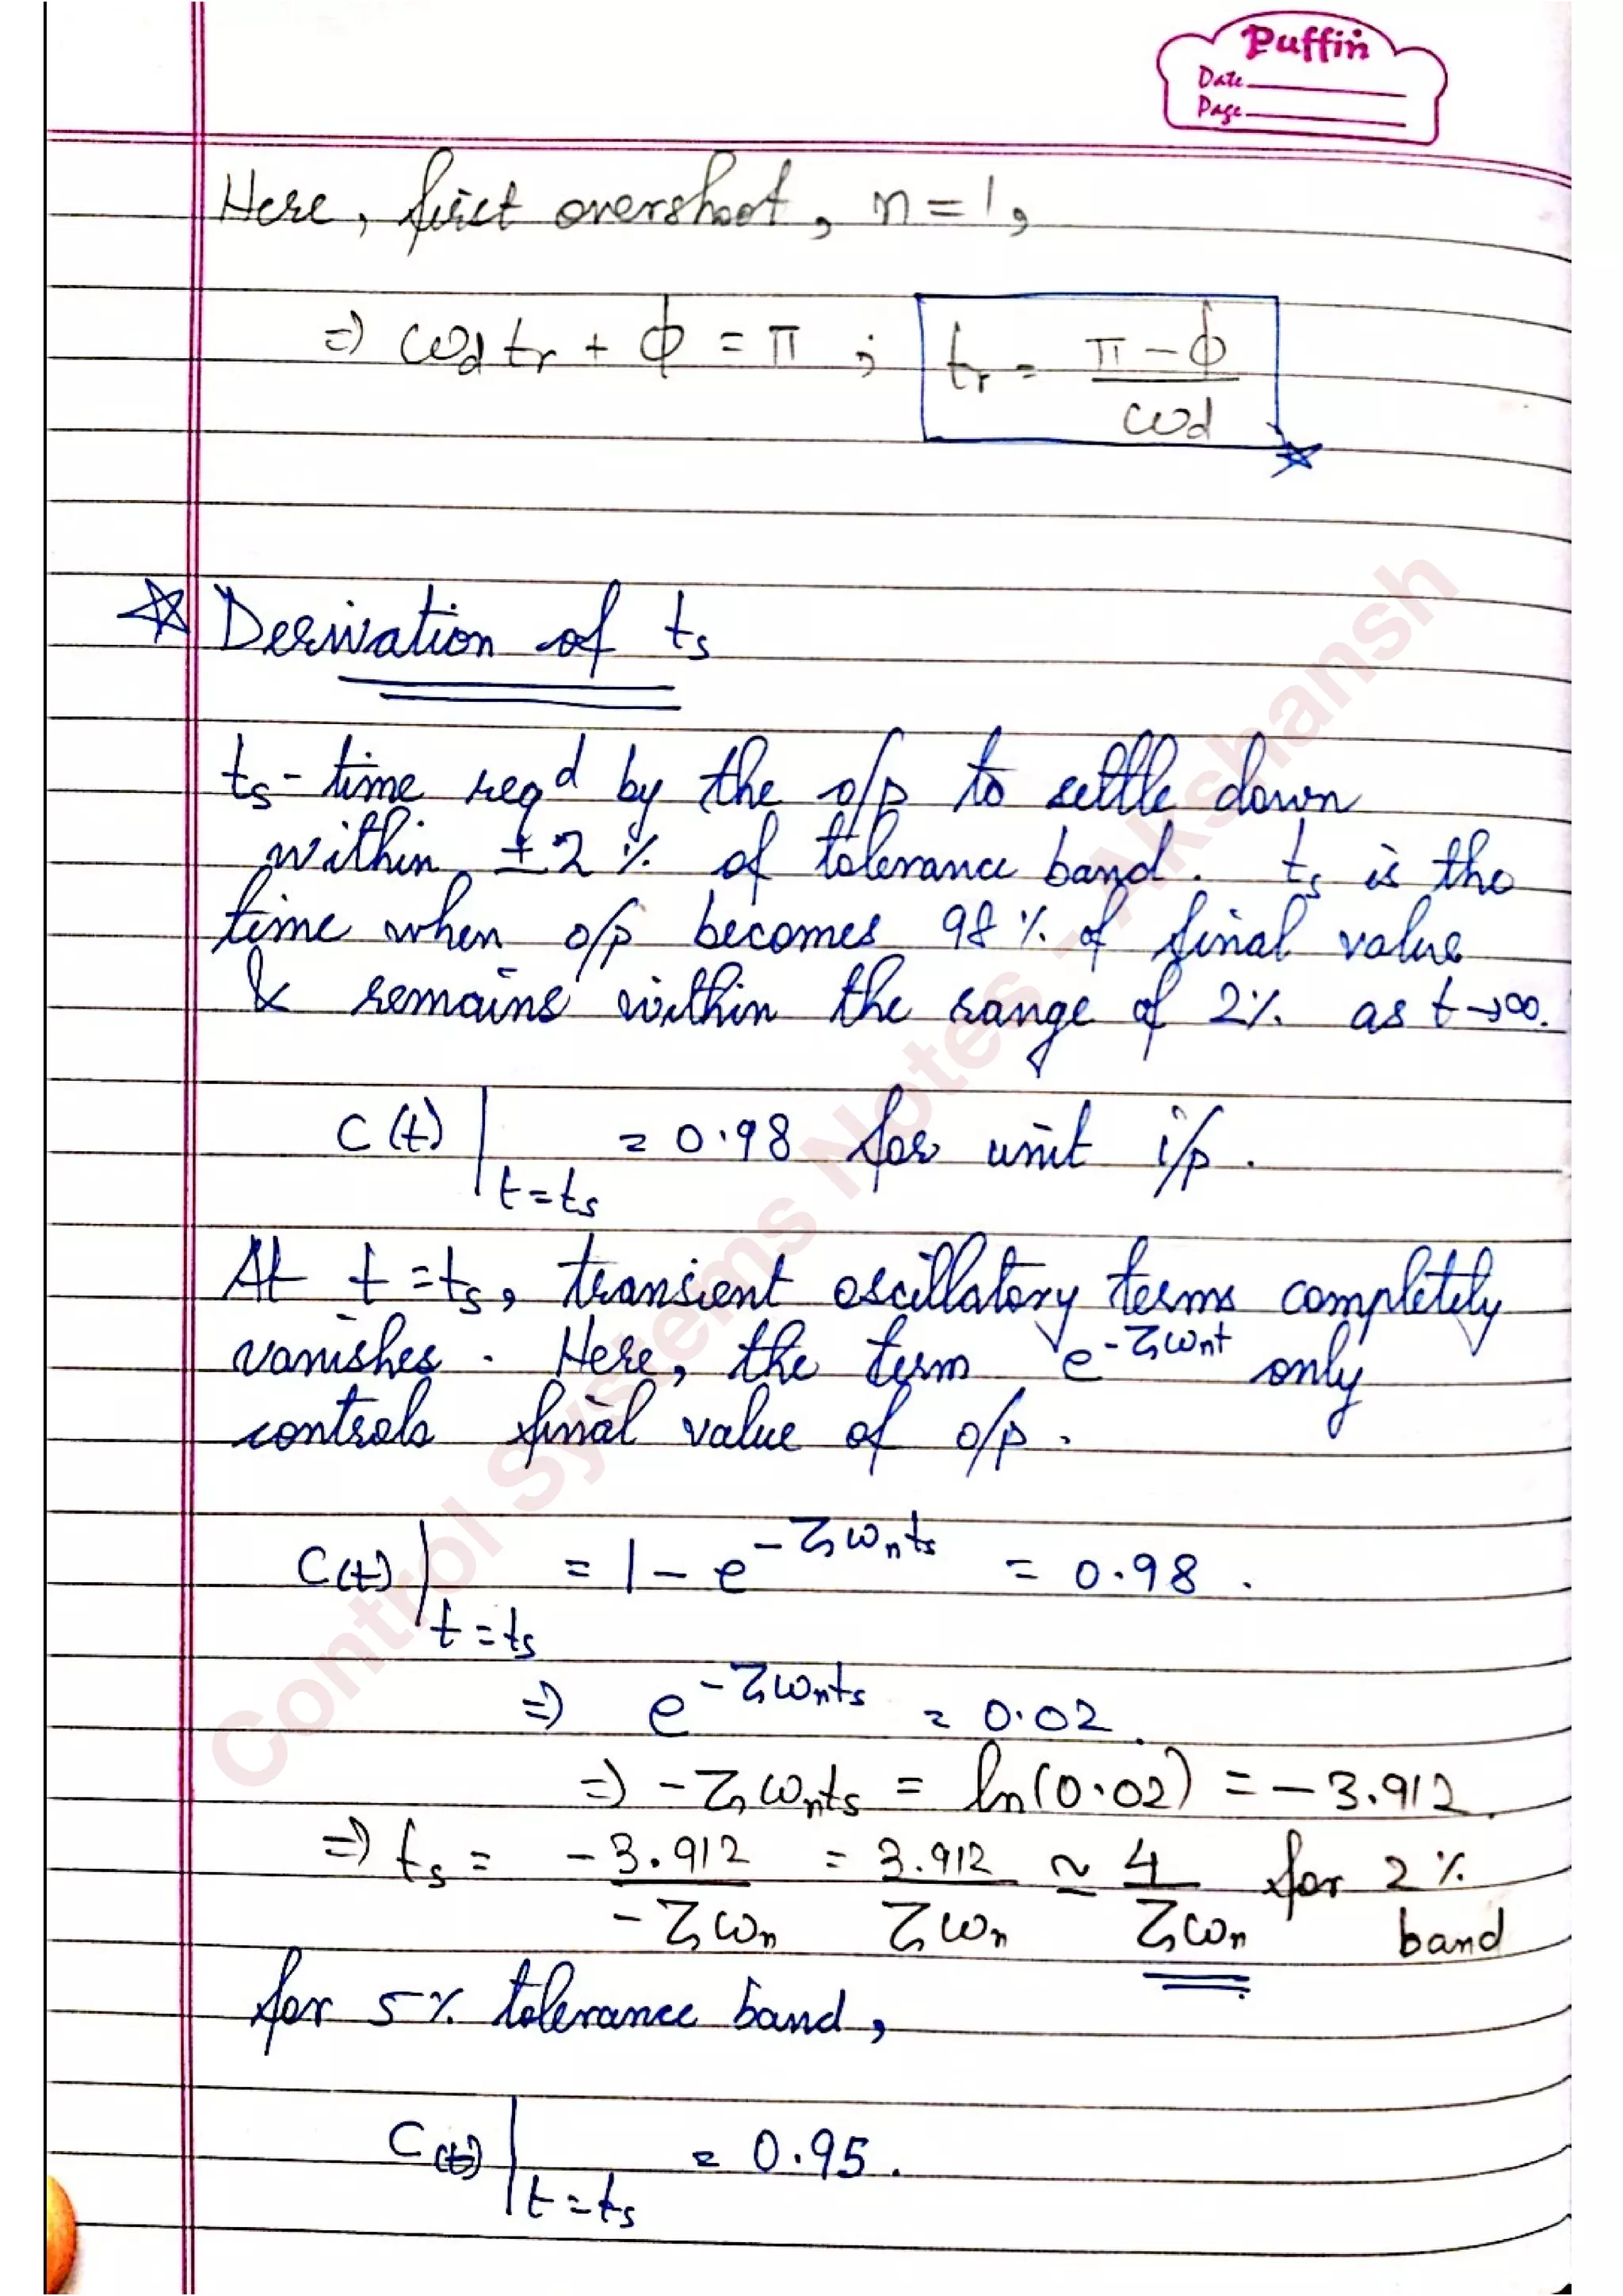 Puffin
Date
Page
Here, first overshoot, n=1,
⇒ ωd tr + ϕ = π ; tr = (π-ϕ)/ωd
☆ Derivation of ts
ts - time reqd by the o/p to settle down
within ±2% of tolerance band. ts is the
time when o/p becomes 98% of final value
& remains within the range of 2% as t→∞.
C(t)|t=ts = 0.98 for unit i/p.
At t=ts, transient oscillatory terms completely
vanishes. Here, the term e^-ζωnt only
controls final value of o/p.
C(t)|t=ts = 1-e^-ζωnts = 0.98.
⇒ e^-ζωnts = 0.02.
⇒ -ζωnts = ln(0.02) = -3.912.
⇒ ts = -3.912/-ζωn = 3.912/ζωn ≃ 4/ζωn for 2% band
for 5% tolerance band,
C(t)|t=ts = 0.95.
Control Systems Notes - Akshansh